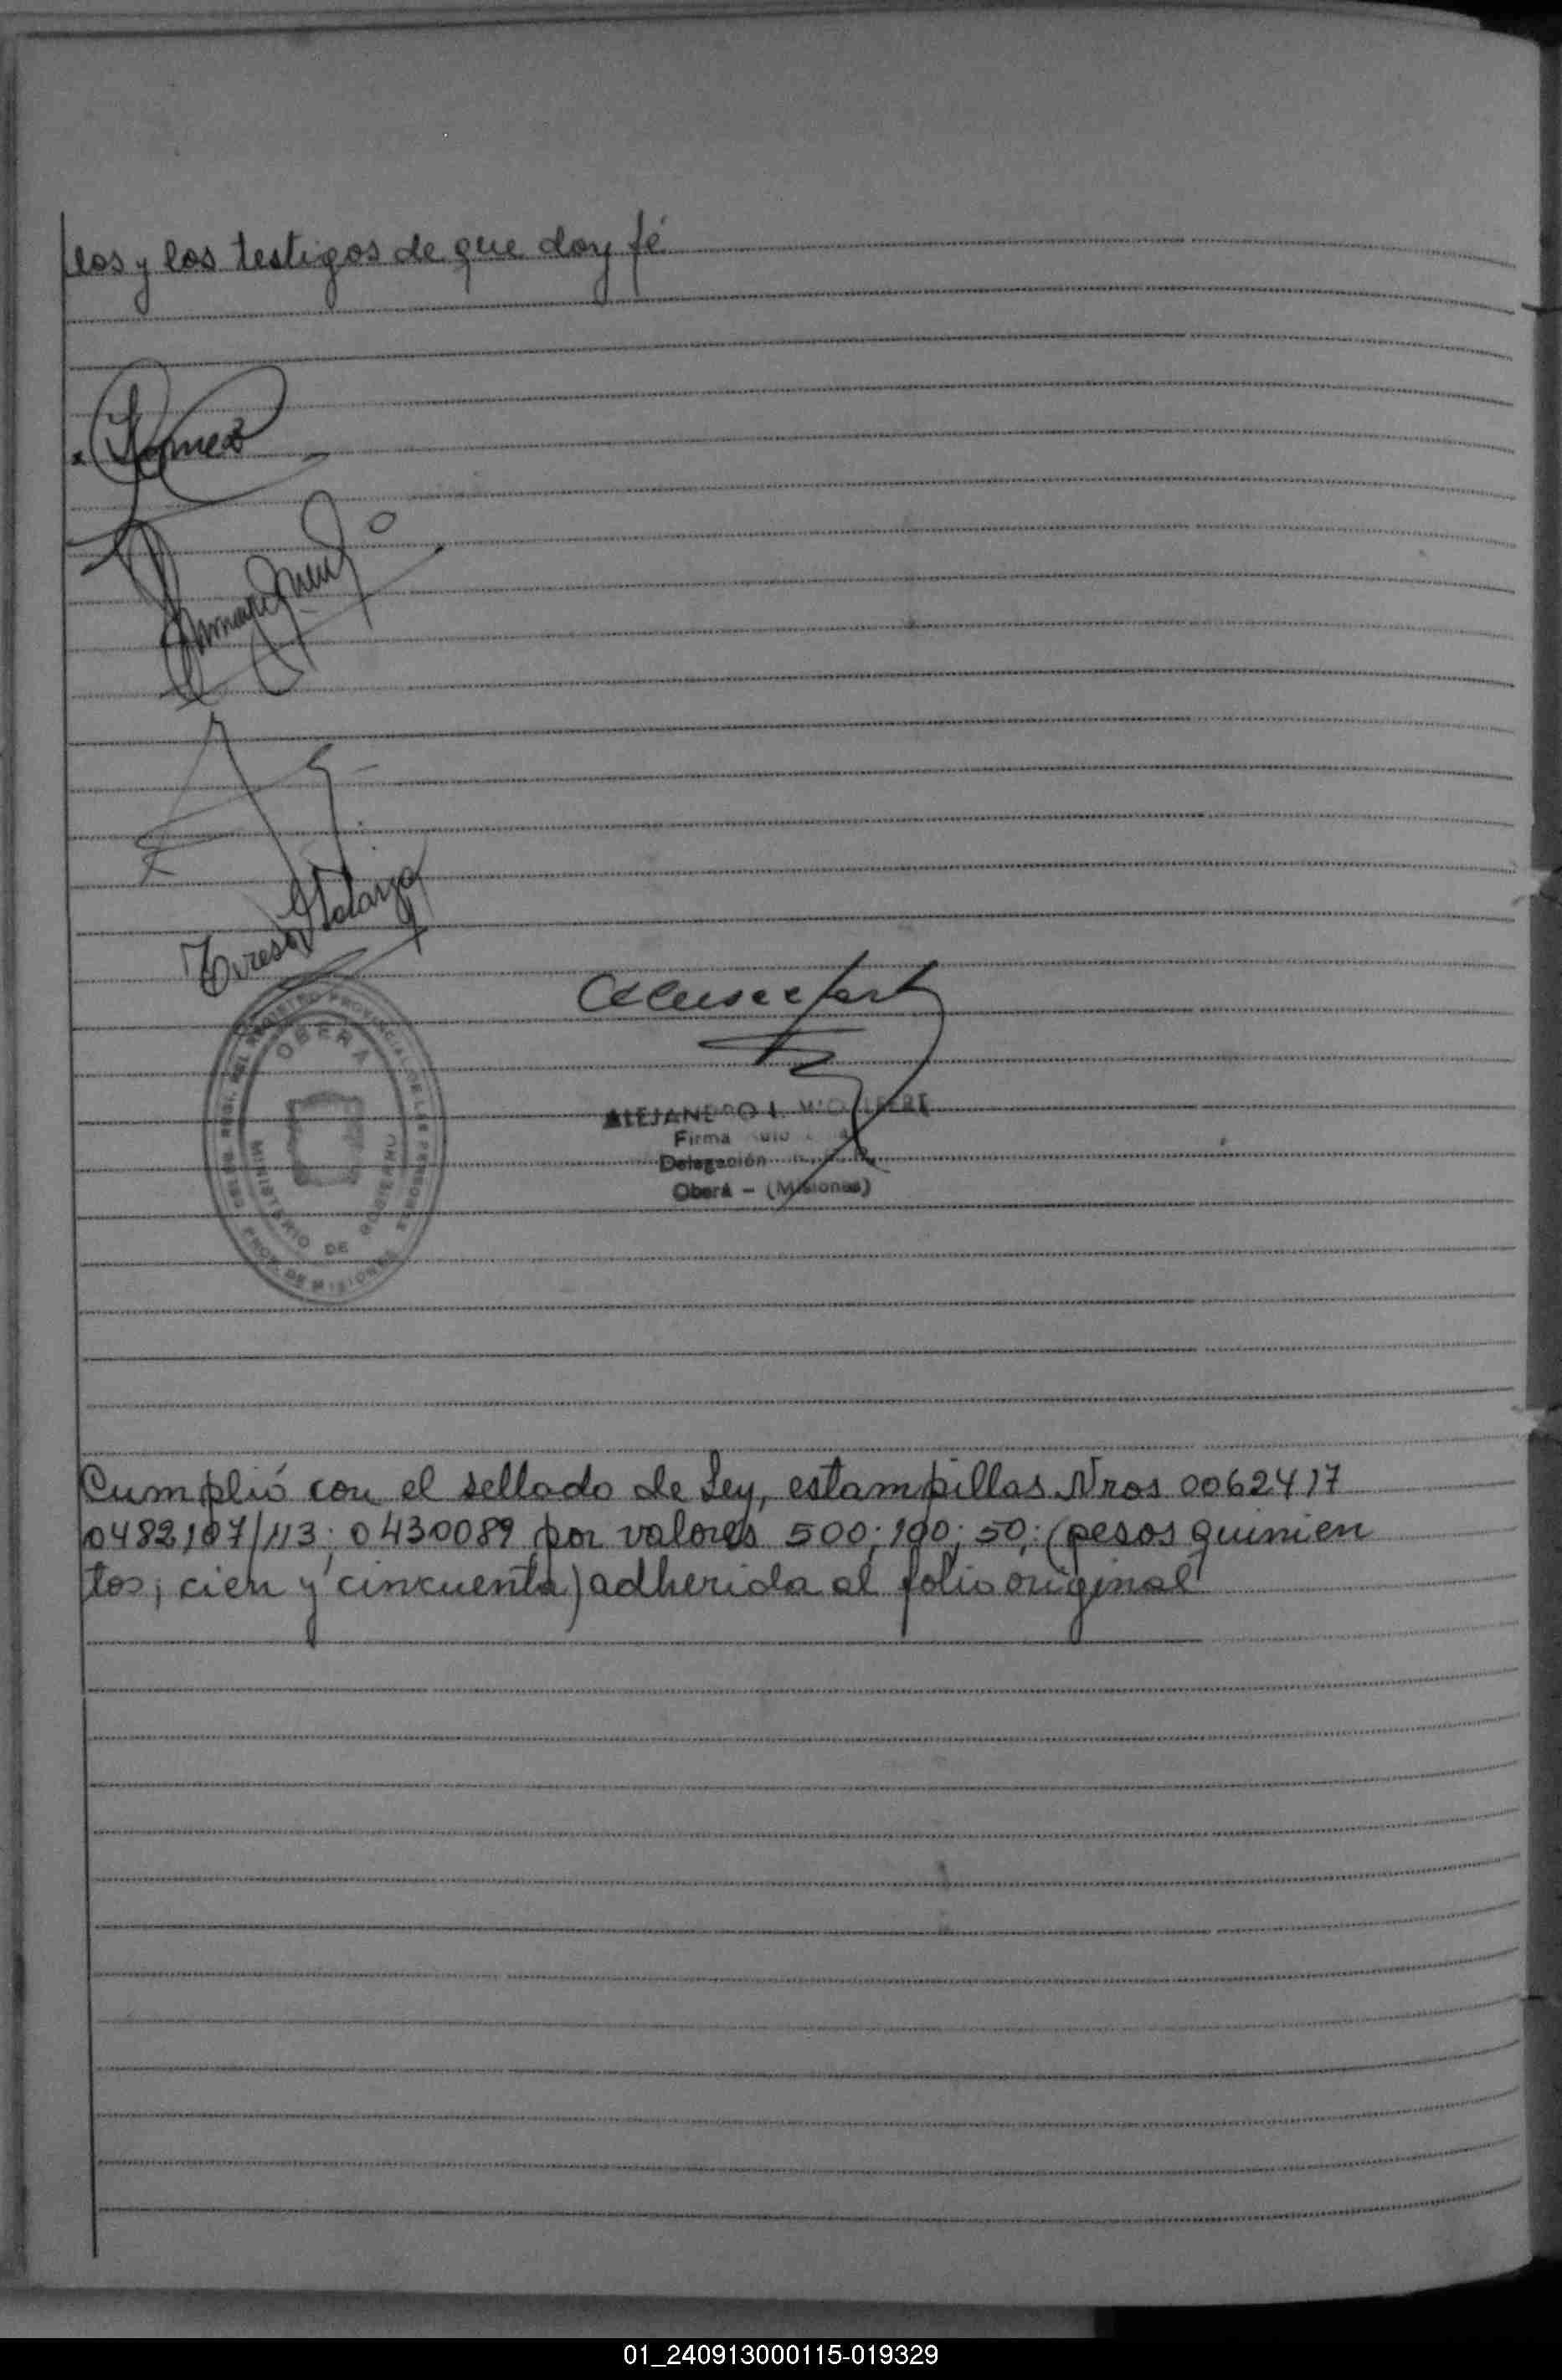 los y los testigos de que doy fé
Gomez
Teresa
REGISTRO PROVINCIAL DE LAS PERSONAS
OBERA
MINISTERIO DE GOBIERNO
PROV. DE MISIONES
ALEJANDRO
Firma
Delegación
Oberá - (Misiones)
Cumplió con el sellado de Ley, estampillas Nros 0062417
0482107/113; 0430089 por valores 500; 100; 50; (pesos quinien
tos; cien y cincuenta) adherida al folio original
01_240913000115-019329